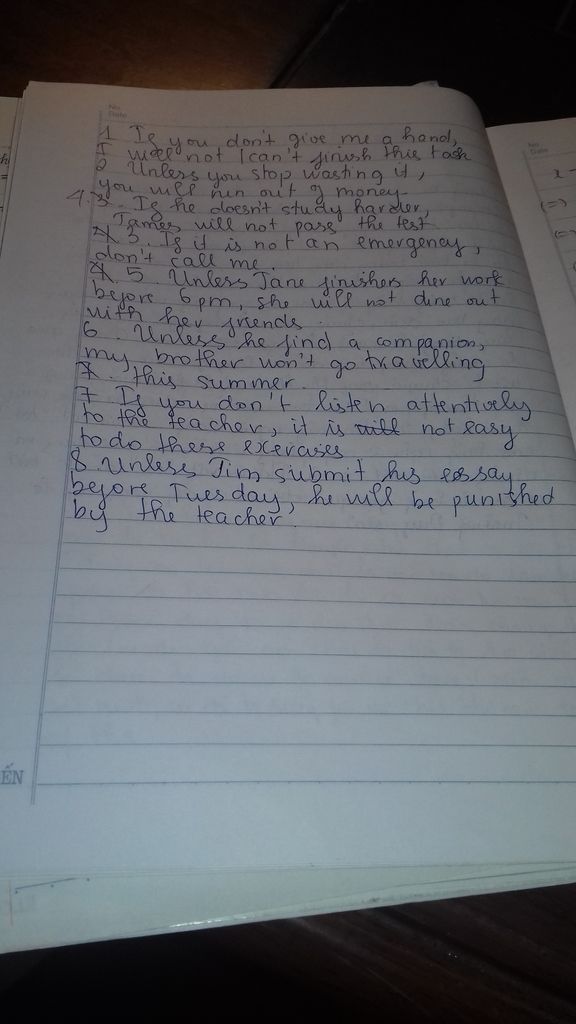 No.
Date
1 If you don't give me a hand,
I will not / can't finish this task
2 Unless you stop wasting it,
you will run out of money.
4. 3. If he doesn't study harder,
James will not pass the test
3. If it is not an emergency,
don't call me.
5. Unless Jane finishers her work
before 6 pm, she will not dine out
with her friends.
6. Unless he find a companion,
my brother won't go travelling
7. this summer.
7 If you don't listen attentively
to the teacher, it is will not easy
to do these exercises
8. Unless Jim submit his essay
before Tuesday, he will be punished
by the teacher.
ẾN
No.
Date
x -
(=)
(=)